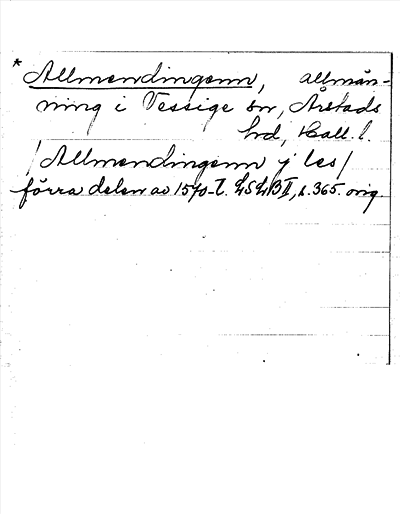 * Allmendingenn, allmän-
ning i Vessige sn, Årstads
hd, Hall. l.
/Allmendingenn j les/
förra delen av 1570-t. LSLB II, s. 365. orig.